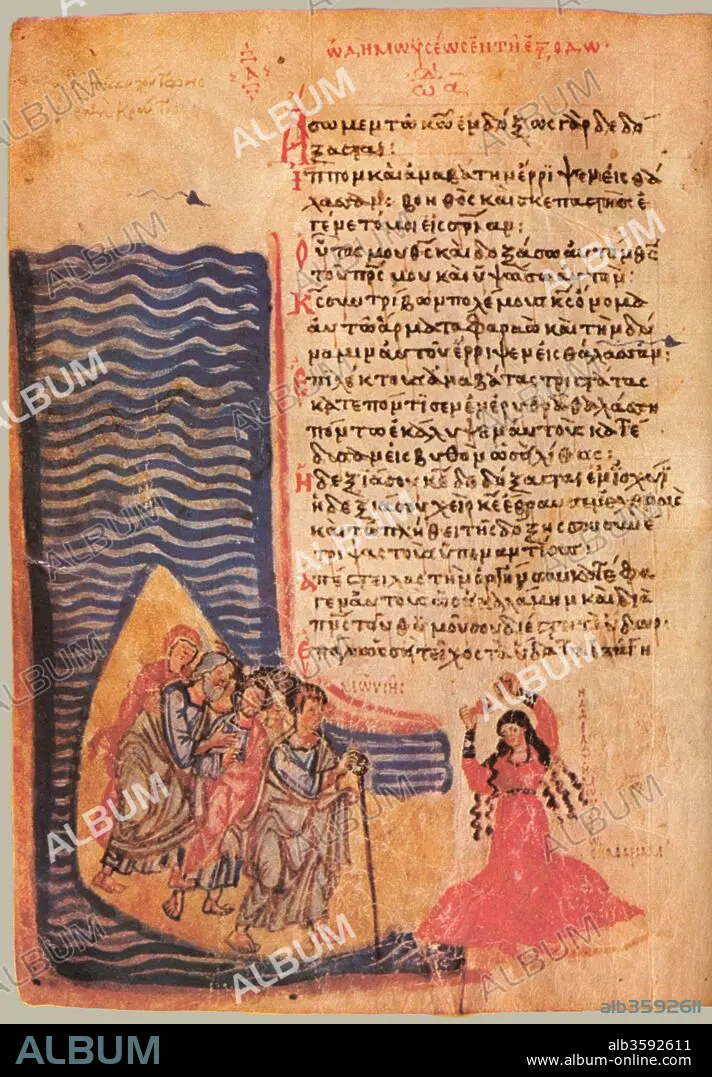 ὠδὴ Μωυσέως ἐν τῇ ἐξόδω
ὠδὴ α
Ἄσωμεν τῶ κω ἐνδόξως γὰρ δεδό
ξασται:
Ἵππον καὶ ἀναβάτην ἔρριψεν εἰς θά
λασσαν: βοηθὸς καὶ σκεπαστὴς ἐ
γένετό μοι εἰς σρίαν:
Οὗτος μου θς καὶ δοξάσω αὐτὸν θς
τοῦ πρς μου καὶ ὑψώσω αὐτόν:
Κς συντρίβων πολέμους κς ὄνομα
αὐτῶ ἅρματα Φαραὼ καὶ τὴν δύ
ναμιν αὐτοῦ ἔρριψεν εἰς θάλασσαν:
Ἐπιλέκτους ἀναβάτας τριστάτας
κατεπόντισεν ἐν ἐρυθρᾶ θαλάσση
πόντω ἐκάλυψεν αὐτοὺς κατέ
δυσαν εἰς βυθὸν ὡσεὶ λίθος:
Ἡ δεξιά σου κε δεδόξασται ἐν ἰσχύϊ
ἡ δεξιά σου χεὶρ κε ἔθραυσεν ἐχθρούς
καὶ τῶ πλήθει τῆς δόξης σου συνέ
τριψας τοὺς ὑπεναντίους:
Ἀπέστειλας τὴν ὀργήν σου κατέφα
γεν αὐτοὺς ὡσεὶ καλάμην καὶ διὰ
πνς τοῦ θυμοῦ σου διέστη τὸ ὕδωρ:
Ἐπάγη ὡσεὶ τεῖχος τὰ ὕδατα ἐπάγη
ΜΩΥCΗC
ALBUM
alb3592611
www.album-online.com